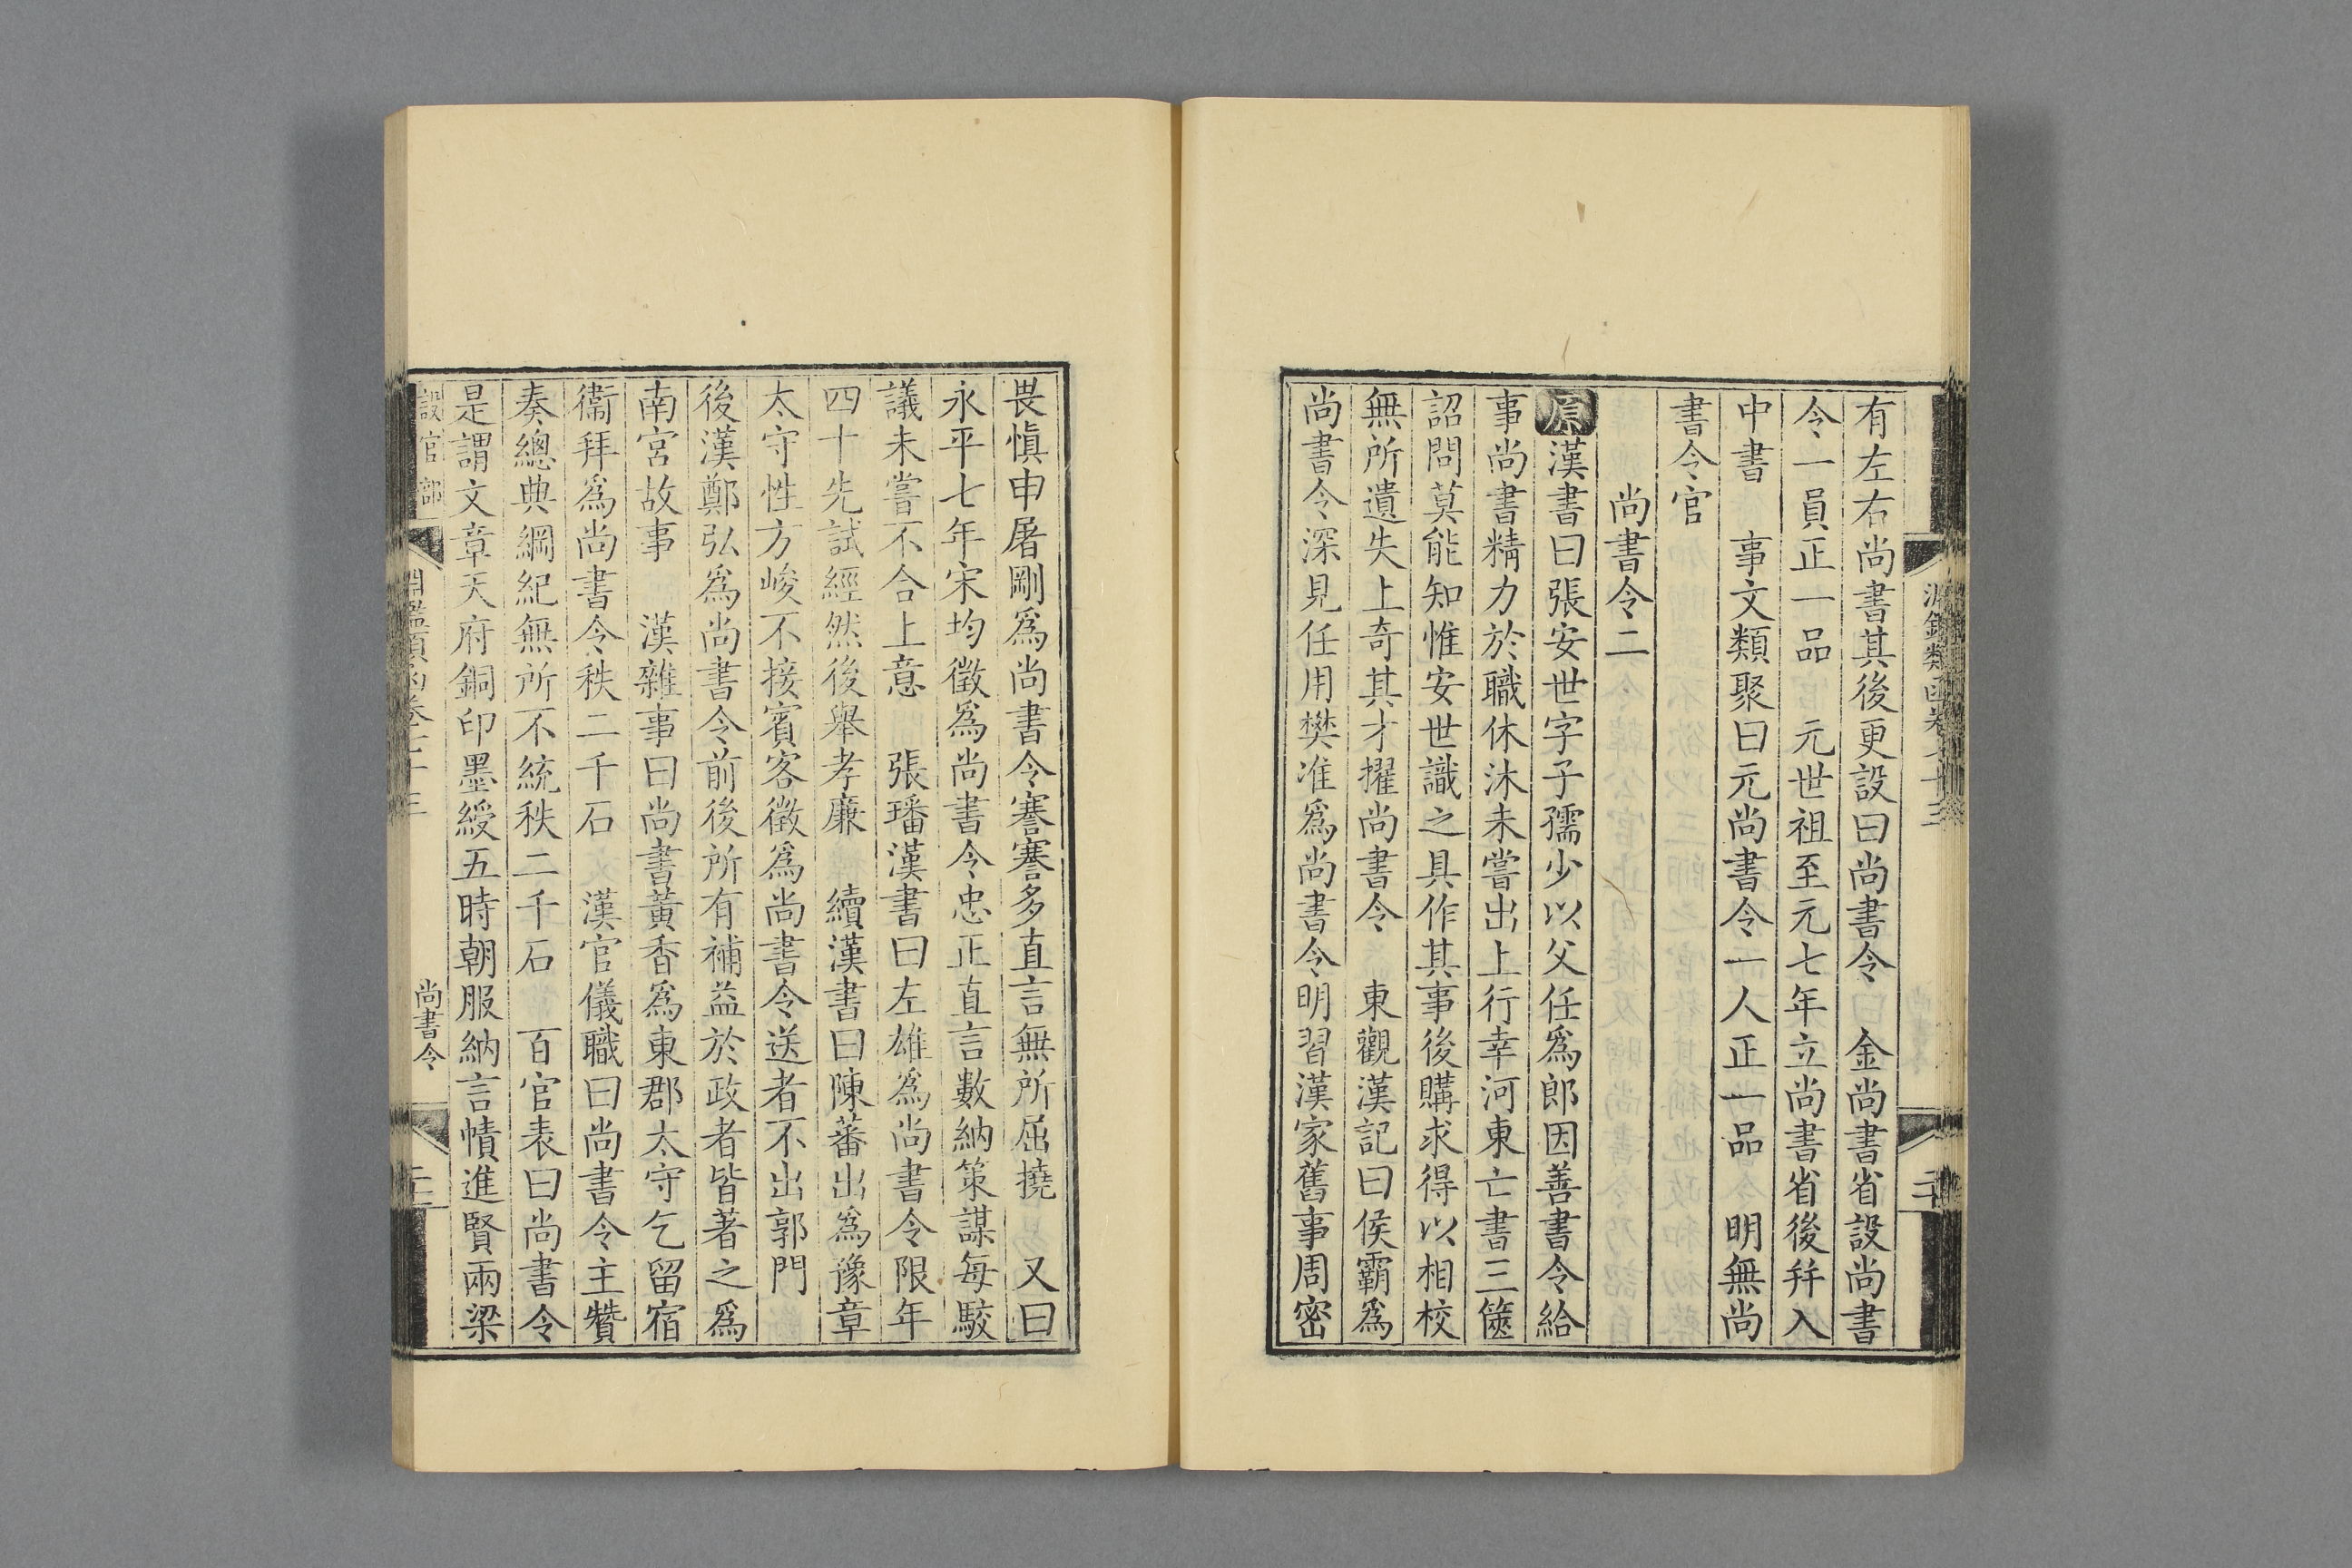 有左右尚書其後更設曰尚書令　金尚書省設尚書
令一員正一品　元世祖至元七年立尚書省後幷入
中書　事文類聚曰元尚書令一人正一品　明無尚
書令官
尚書令二
原漢書曰張安世字子孺少以父任爲郎因善書令給
事尚書精力於職休沐未嘗出上行幸河東亡書三篋
詔問莫能知惟安世識之具作其事後購求得以相校
無所遺失上奇其才擢尚書令　東觀漢記曰侯霸爲
尚書令深見任用樊准爲尚書令明習漢家舊事周密
畏愼申屠剛爲尚書令謇謇多直言無所屈撓　又曰
永平七年宋均徵爲尚書令忠正直言數納策謀每駮
議未嘗不合上意　張璠漢書曰左雄爲尚書令限年
四十先試經然後舉孝廉　續漢書曰陳蕃出爲豫章
太守性方峻不接賓客徵爲尚書令送者不出郭門
後漢鄭弘爲尚書令前後所有補益於政者皆著之爲
南宮故事　漢雜事曰尚書黃香爲東郡太守乞留宿
衞拜爲尚書令秩二千石　漢官儀職曰尚書令主贊
奏總典綱紀無所不統秩二千石　百官表曰尚書令
是謂文章天府銅印墨綬五時朝服納言幘進賢兩梁
設官部
淵鑑類函卷七十三
尚書令
二